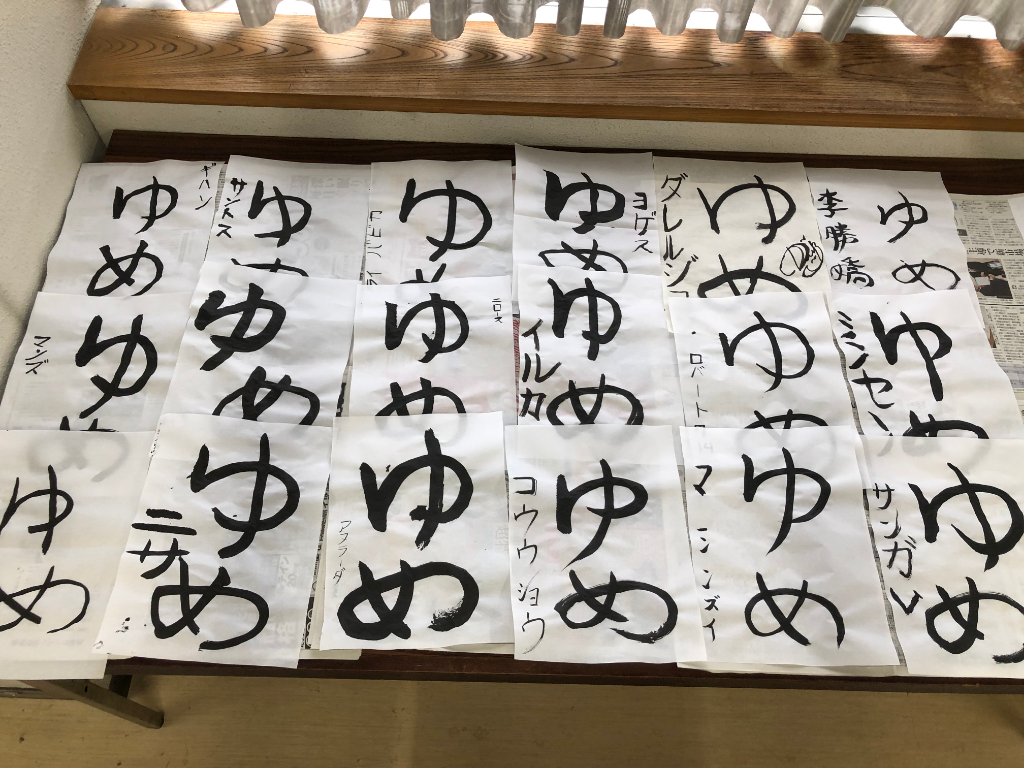 ゆめ
ギハン
ゆめ
サントス
ゆ
ゆめ
ヨゲス
ゆめ
ダレルジョ
ゆめ
李勝嬌
ゆめ
マンズ
ゆめ
ゆめ
ニロキ
ゆめ
イルカ
ゆめ
ロバート
ゆめ
ミンセン
ゆめ
ゆめ
ニサ
ゆめ
アフラーダ
ゆめ
コウウショウ
ゆめ
マシンズイ
ゆめ
サンガい